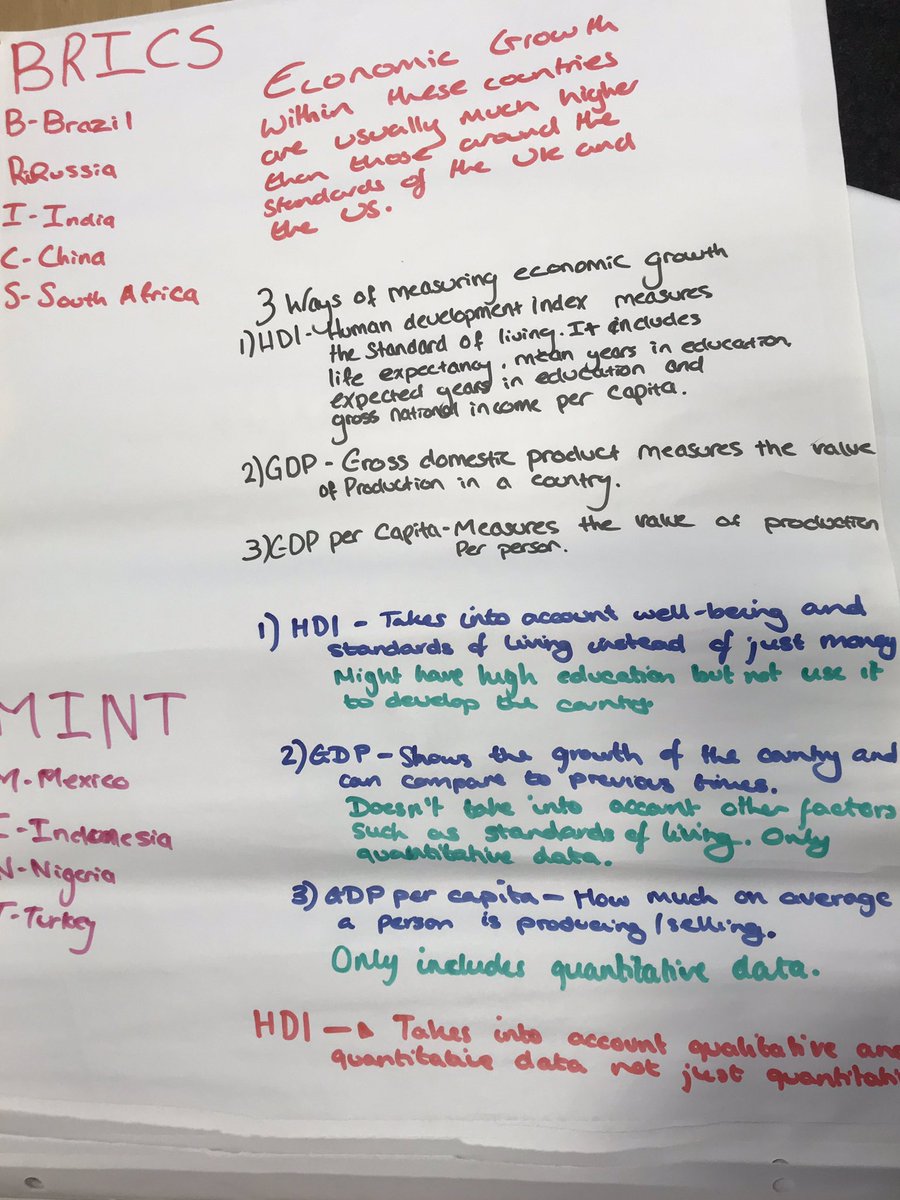 BRICS
B-Brazil
R-Russia
I-India
C-China
S-South Africa
Economic Growth
within these countries
are usually much higher
than those around the
standards of the UK and
the US.
3 Ways of measuring economic growth
1)HDI-Human development Index measures
the standard of living. It includes
life expectancy, mean years in education,
expected years in education and
gross national income per capita.
2)GDP - Gross domestic product measures the value
of Production in a country.
3)GDP per capita-Measures the value of production
Per person.
1) HDI - Takes into account well-being and
standards of living instead of just money
Might have high education but not use it
to develop the country.
2)GDP - Shows the growth of the country and
can compare to previous times.
Doesn't take into account other factors
such as standards of living. Only
quantitative data.
3) GDP per capita - How much on average
a person is producing/selling.
Only includes quantitative data.
HDI → Takes into account qualitative and
quantitative data not just quantitati
MINT
M-Mexico
I-Indonesia
N-Nigeria
T-Turkey